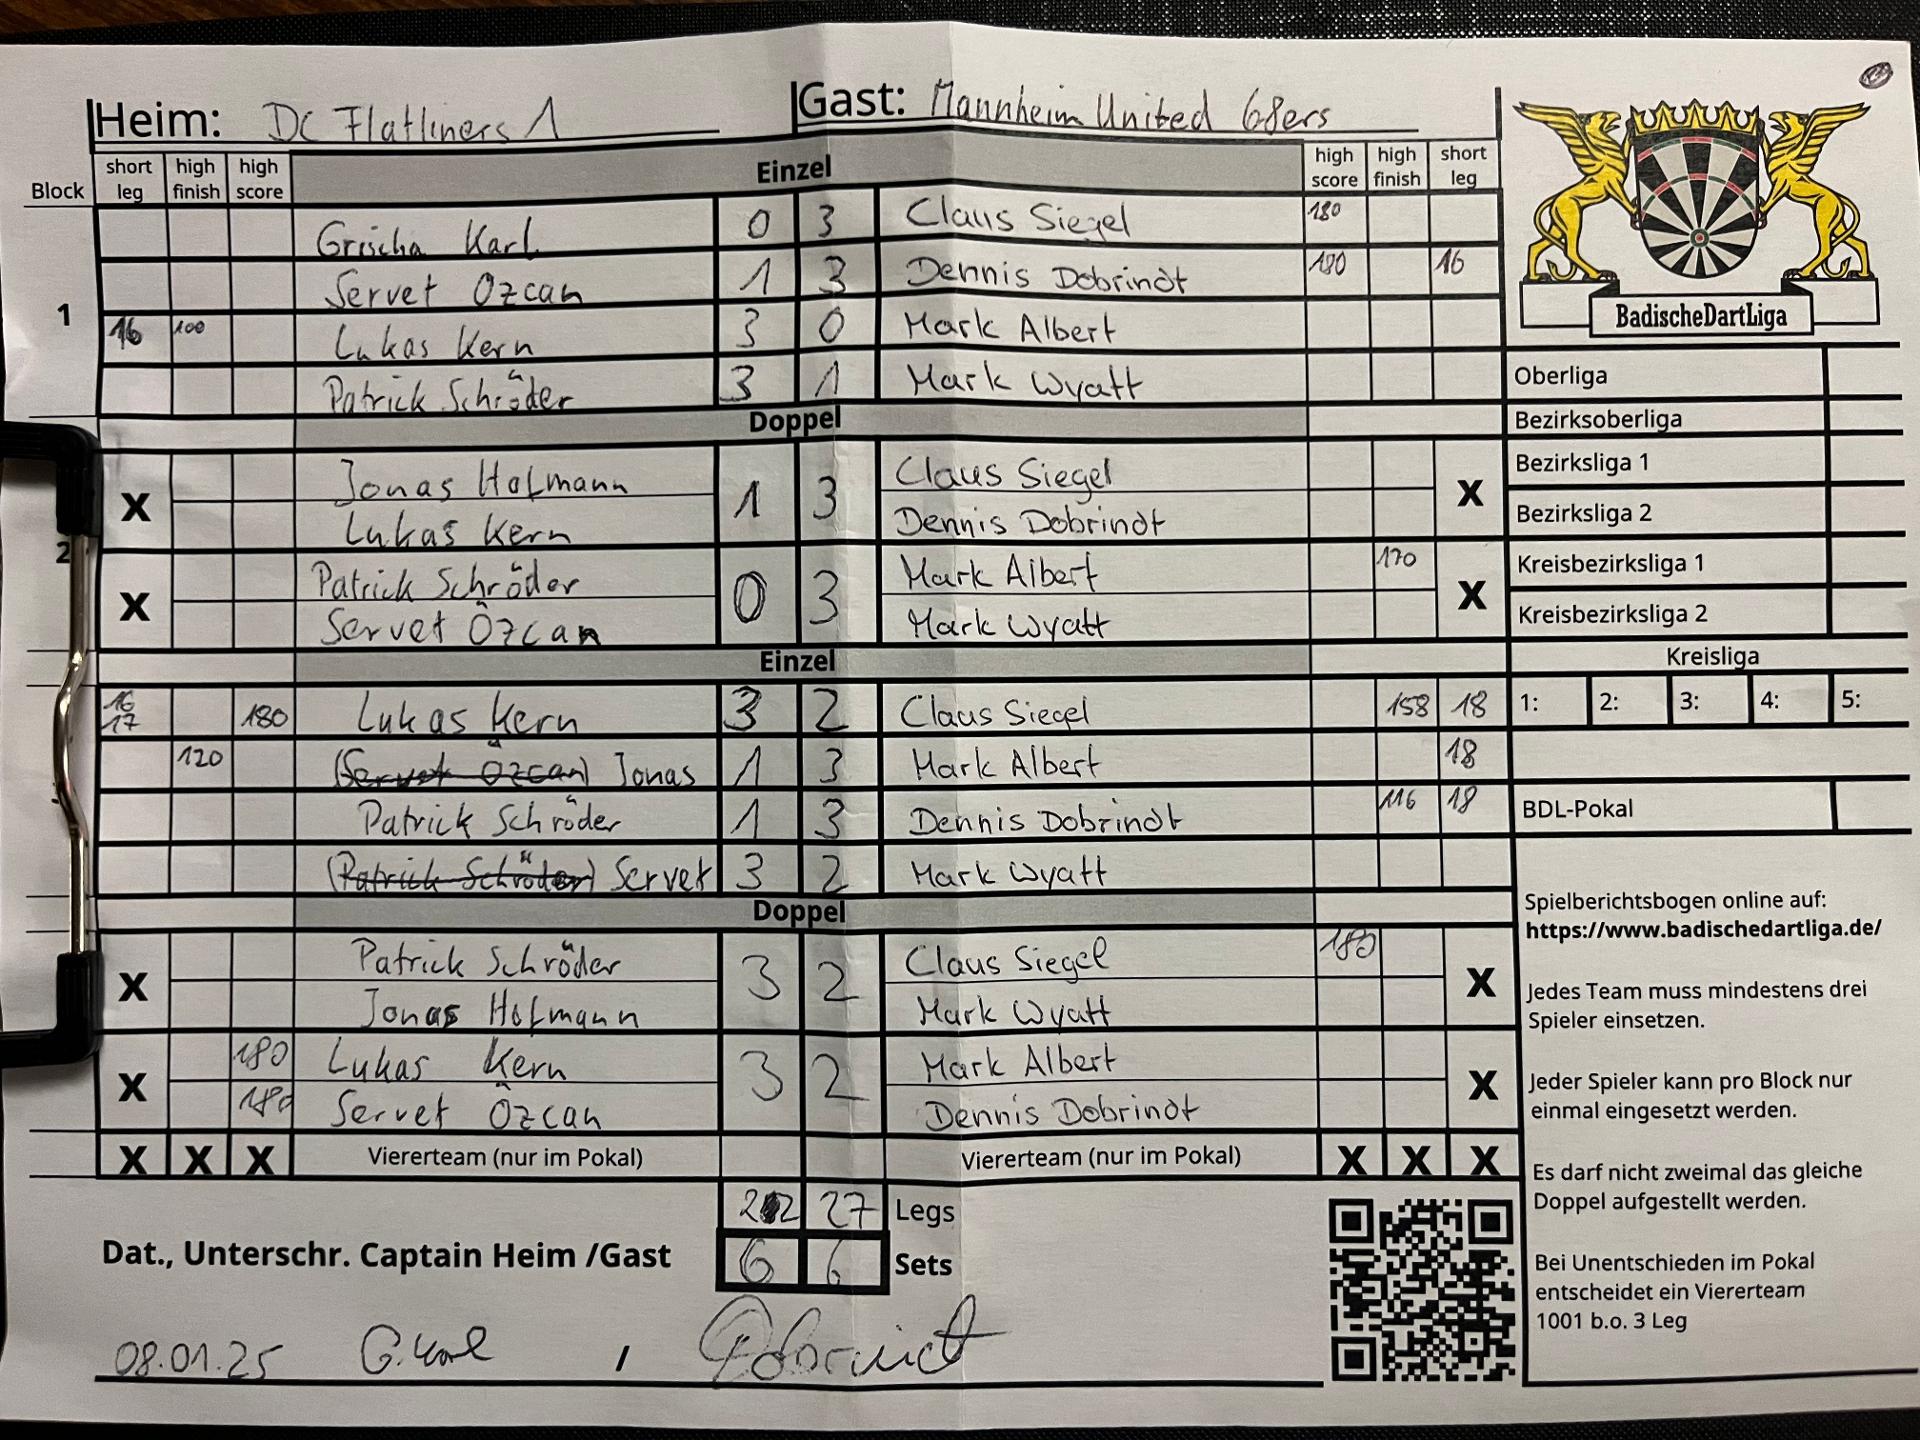 Heim: DC Flatliners 1 Gast: Mannheim United 68ers
Block short leg high finish high score Einzel high score high finish short leg
1
Grischa Karl 0 3 Claus Siegel 180
Servet Özcan 1 3 Dennis Dobrindt 180 16
16 100 Lukas Kern 3 0 Mark Albert
Patrick Schröder 3 1 Mark Wyatt
Doppel
2
X Jonas Hofmann 1 3 Claus Siegel X
Lukas Kern Dennis Dobrindt
X Patrick Schröder 0 3 Mark Albert 170 X
Servet Özcan Mark Wyatt
Einzel
16 17 180 Lukas Kern 3 2 Claus Siegel 158 18
120 (Servet Özcan) Jonas 1 3 Mark Albert 18
Patrick Schröder 1 3 Dennis Dobrindt 116 18
(Patrick Schröder) Servet 3 2 Mark Wyatt
Doppel
X Patrick Schröder 3 2 Claus Siegel 180 X
Jonas Hofmann Mark Wyatt
X 180 Lukas Kern 3 2 Mark Albert X
180 Servet Özcan Dennis Dobrindt
X X X Viererteam (nur im Pokal) Viererteam (nur im Pokal) X X X
22 27 Legs
6 6 Sets
Dat., Unterschr. Captain Heim /Gast
08.01.25 G. Karl / Dobrindt
BadischeDartLiga
Oberliga
Bezirksoberliga
Bezirksliga 1
Bezirksliga 2
Kreisbezirksliga 1
Kreisbezirksliga 2
Kreisliga
1: 2: 3: 4: 5:
BDL-Pokal
Spielberichtsbogen online auf:
https://www.badischedartliga.de/
Jedes Team muss mindestens drei
Spieler einsetzen.
Jeder Spieler kann pro Block nur
einmal eingesetzt werden.
Es darf nicht zweimal das gleiche
Doppel aufgestellt werden.
Bei Unentschieden im Pokal
entscheidet ein Viererteam
1001 b.o. 3 Leg